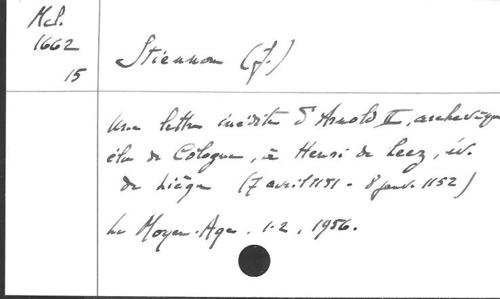 Mel.
1662
15
Stiennon (J.)
Une lettre inédite d'Arnold II, archevêque
élu de Cologne, à Henri de Leez, év.
de Liège (7 avril 1151 - 8 janv. 1152)
Le Moyen-Age. 1-2, 1956.